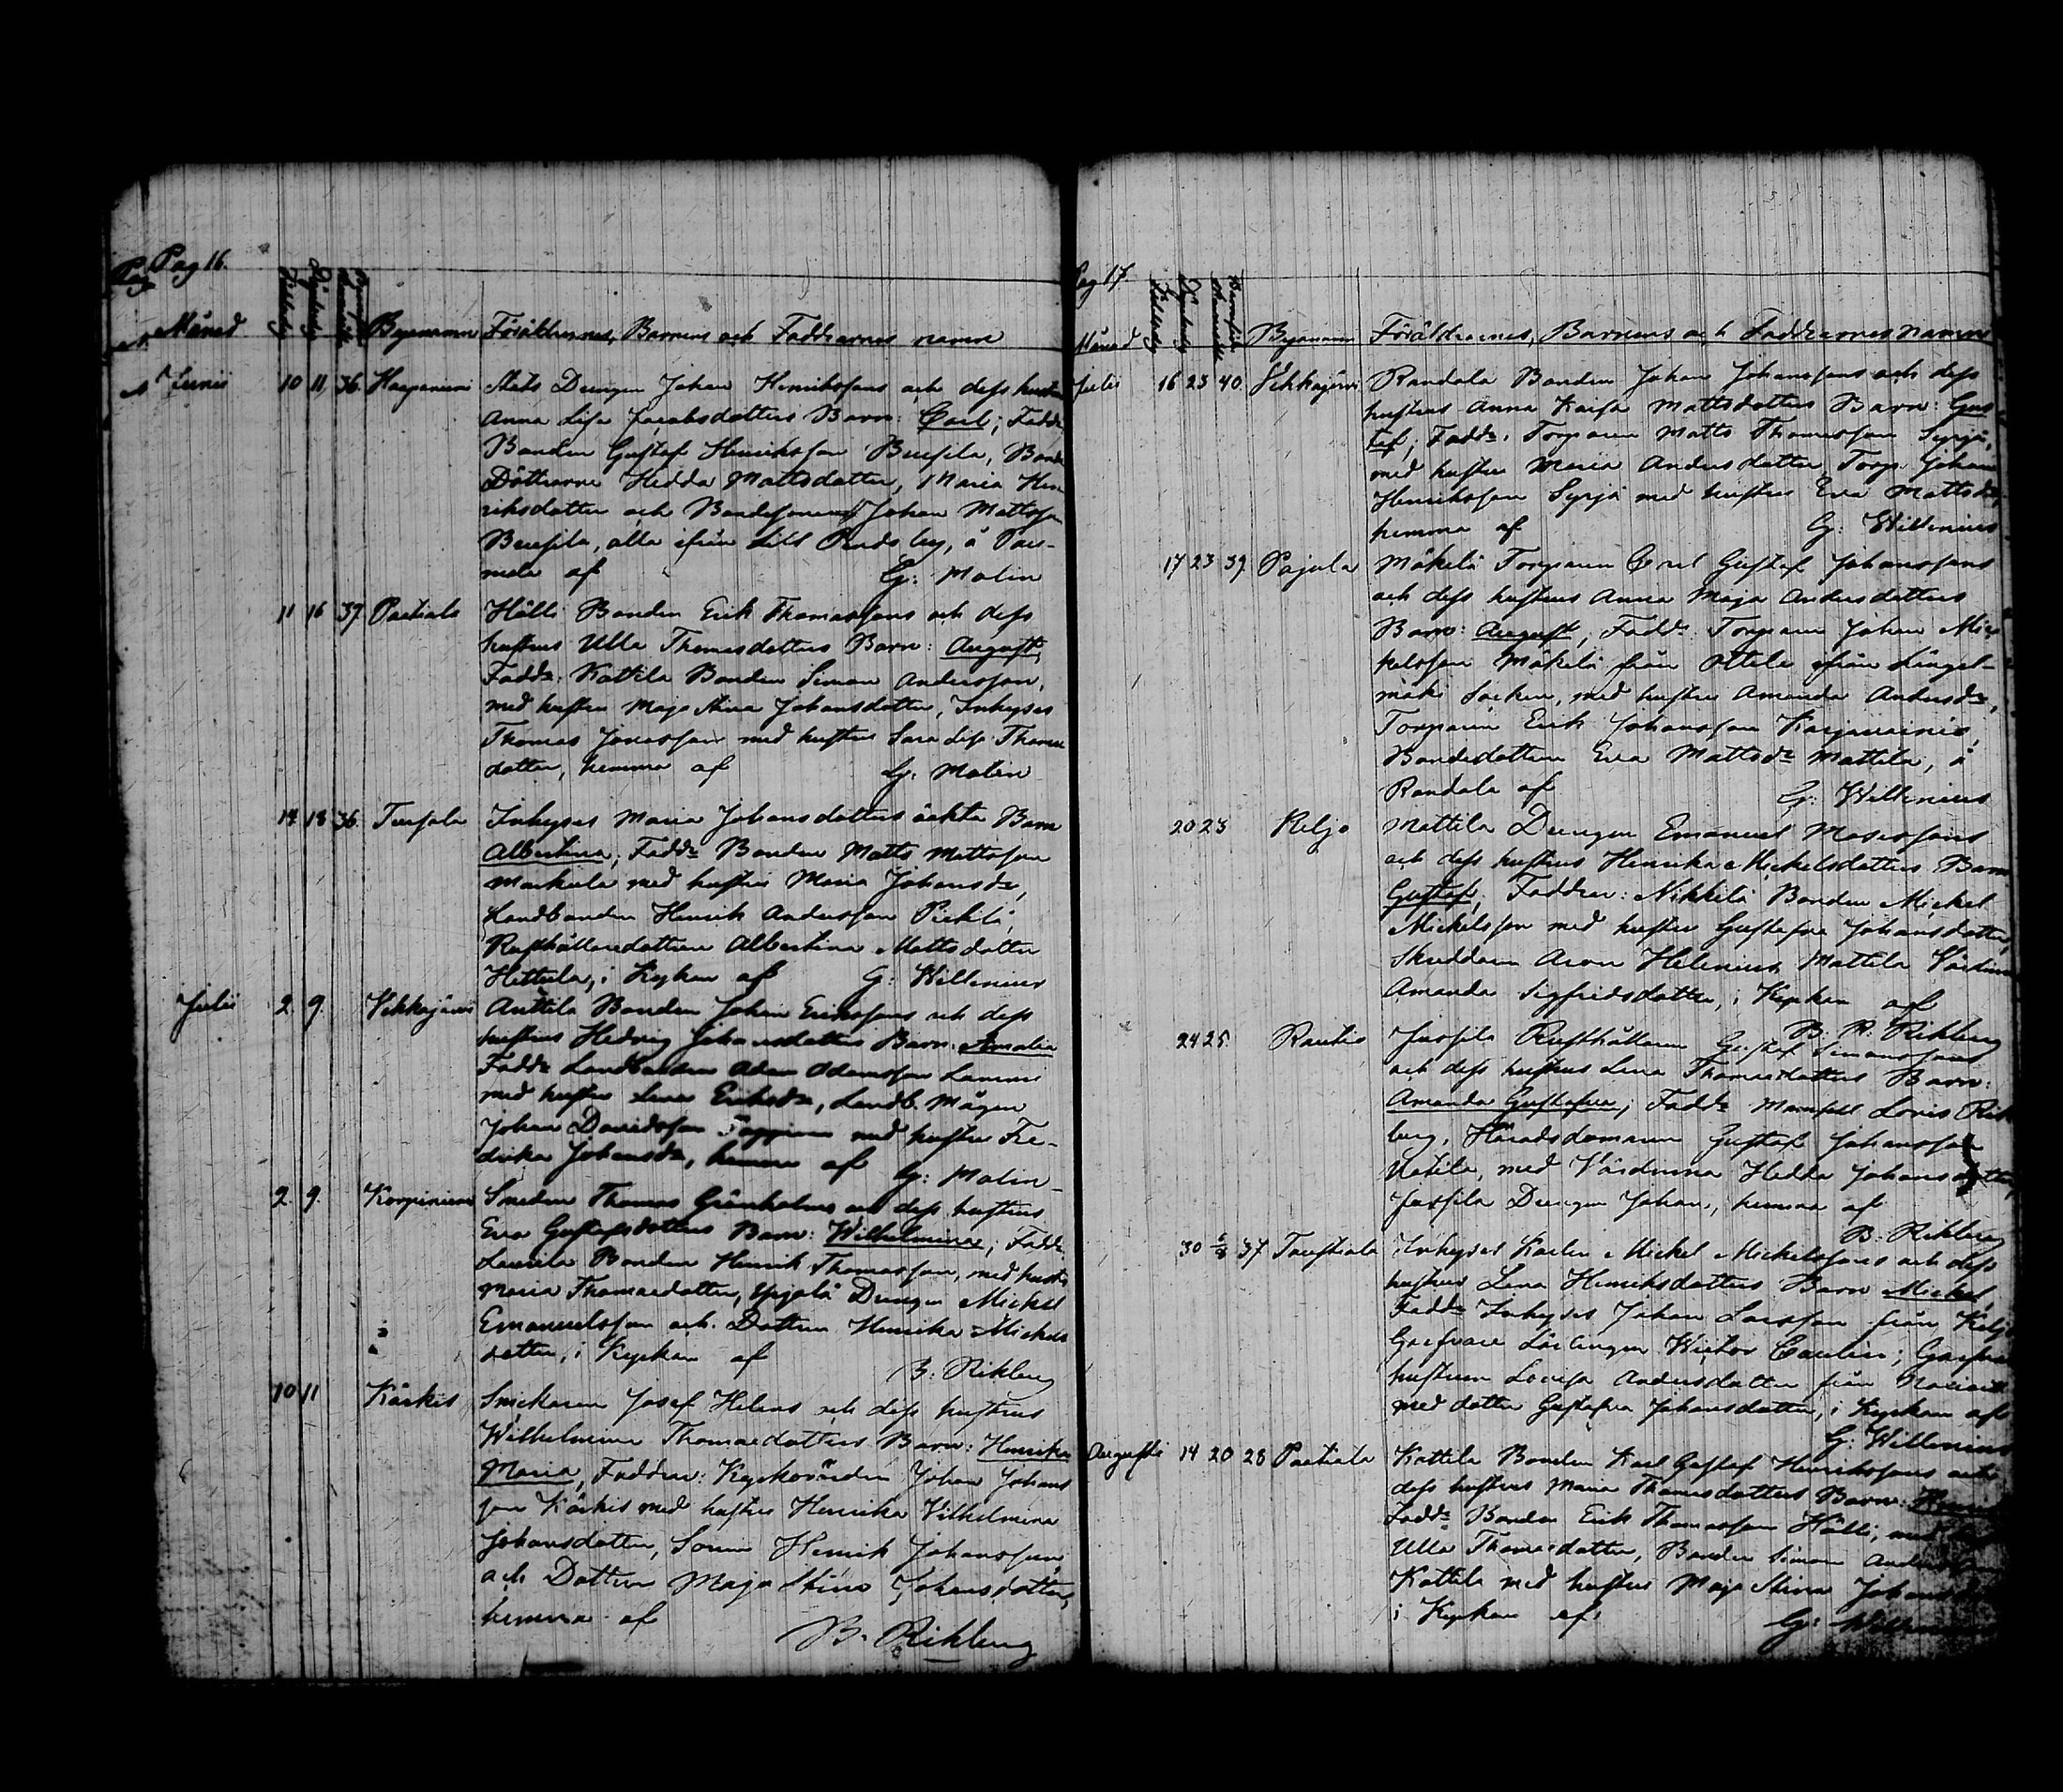 Pag 16.
Månad Födelsedag Döpelsedag Barnaföd. ålder Byenamn Föräldrarnes, Barnens och Faddrarnes namn
Junii 10 11 36. Haapaniemi Drengen Johan Henrikssons och dess hustrus
Anna Lisa Jacobsdotters Barn: Carl; Fadd:
Bonden Gustaf Henriksson Buusila, Bonde
Döttrarne Hedda Mattsdotter, Maria Hen
riksdotter och Bondesonen Johan Mattsson
Buusila, alla ifrån
af G: Malin
11 16 37 Paatiala Hölli Bonden Erik Thomassons och dess
hustrus Ulla Thomasdotters Barn: August,
Fadd: Kattila Bonden Simon Andersson,
med hustru Maja Stina Johansdotter, Inhyses
Thomas Jonasson med hustru Sara Lisa Thomas
dotter, hemma af G: Malin
14 18 36. Tursola Inhyses Maria Johansdotters oäkta Barn
Albertina, Fadd: Bonden Matts Mattsson
Markula med hustru Maria Johansd:,
Landbonden Henrik Andersson
Rusthållaredottren Albertina Mattsdotter
Hettula, i Kyrkan af G: Willenius
Julii 2 9. Vekkajärvi Anttila Bonden Johan Erikssons och dess
hustrus Hedvig Johansdotters Barn: Amalia
Fadd: Landbonden Adam Adamsson Lammi
med hustru Lena Eriksd:, Landb. Mågen
Johan Davidsson med hustru Fre-
drika Johansd:, hemma af G: Malin
2 9. Korpiniemi Smeden Thomas Grönholms och dess hustrus
Eva Gustafsdotters Barn: Wilhelmina; Fadd:
Laurila Bonden Henrik Thomasson, med hustru
Maria Thomasdotter, Drengen Mickel
Emanuelsson och Dottren Henrika Mickels
dotter, i Kyrkan af
B. Rikberg
10 11 Kärkis Snickaren Josef Helens och dess hustrus
Wilhelmina Thomasdotters Barn: Henrika
Maria, Faddrar: Kyrkovärden Johan Johans
son Kärkis med hustru Henrika Vilhelmina
Johansdotter, Sonen Henrik Johansson
och Dottren Maja Stina Johansdotter,
hemma af
B. Rikberg
Pag 17.
Månad Födelsedag Döpelsedag Byenamn Föräldrarnes, Barnens och Faddrarnes namn
Julii 16 23 40. Vekkajärvi Randala Bonden Johan Johanssons och dess
hustrus Anna Kaisa Mattsdotters Barn: Gus
taf; Fadd: Torparen Matts Thomasson Syrjä,
med hustru Maria Andersdotter, Torp: Johan
Henriksson Syrjä med hustru Eva Mattsd:
hemma af G: Willenius
17 23 39 Pajula Mäkelä Torparen Carl Gustaf Johanssons
och dess hustrus Anna Maja Andersdotters
Barn: August, Fadd: Torparen Johan Mic
kelsson Mäkelä från Attila ifrån Längel-
mäki Socken, med hustru Amanda Andersd:,
Torparen Erik Johansson
Bondedottren Eva Mattsd: Mattila, å
Randala af G: Willenius
20 23 Keljo Mattila Drengen Emanuel Mosessons
och dess hustrus Henrika Mickelsdotters Barn
Gustaf; Faddrar: Nikkilä Bonden Mickel
Mickelsson med hustru Gustafva Johansdotter,
Skräddaren Aron Helenius, Mattila Värdinnan
Amanda Sigfridsdotter, i Kyrkan af
B. R: Rikberg
24 25. Rautio Jussila Rusthållaren Gustaf Simonssons
och dess hustrus Lena Thomasdotters Barn:
Amanda Gustafva; Fadd: Mamsell Lovis Rik
berg, Häradsdomaren Gustaf Johansson
Uotila, med Värdinna Hedda Johansdotter,
Jussila Drengen Johan, hemma af
B. Rikberg
30 6/8 37. Taustiala Inhyses Karlen Mickel Mickelssons och dess
hustrus Lena Henriksdotters Barn Mickel,
Fadd: Inhyses Johan Larsson från Keljo
Garfvare Lärlingen Wictor Caulin; Garfvare
hustrun Lovisa Andersdotter från
med dotter Gustafva Johansdotter, i Kyrkan af
G: Willenius
Augusti 14 20 28 Paatiala Kattila Bonden Karl Gustaf Henrikssons och
dess hustrus Maria Thomasdotters Barn:
Fadd: Bonden Erik Thomasson Hölli, med
Ulla Thomasdotter, Bonden Simon Andersson
Kattila med hustru Maja Stina
i Kyrkan af
G: Willenius